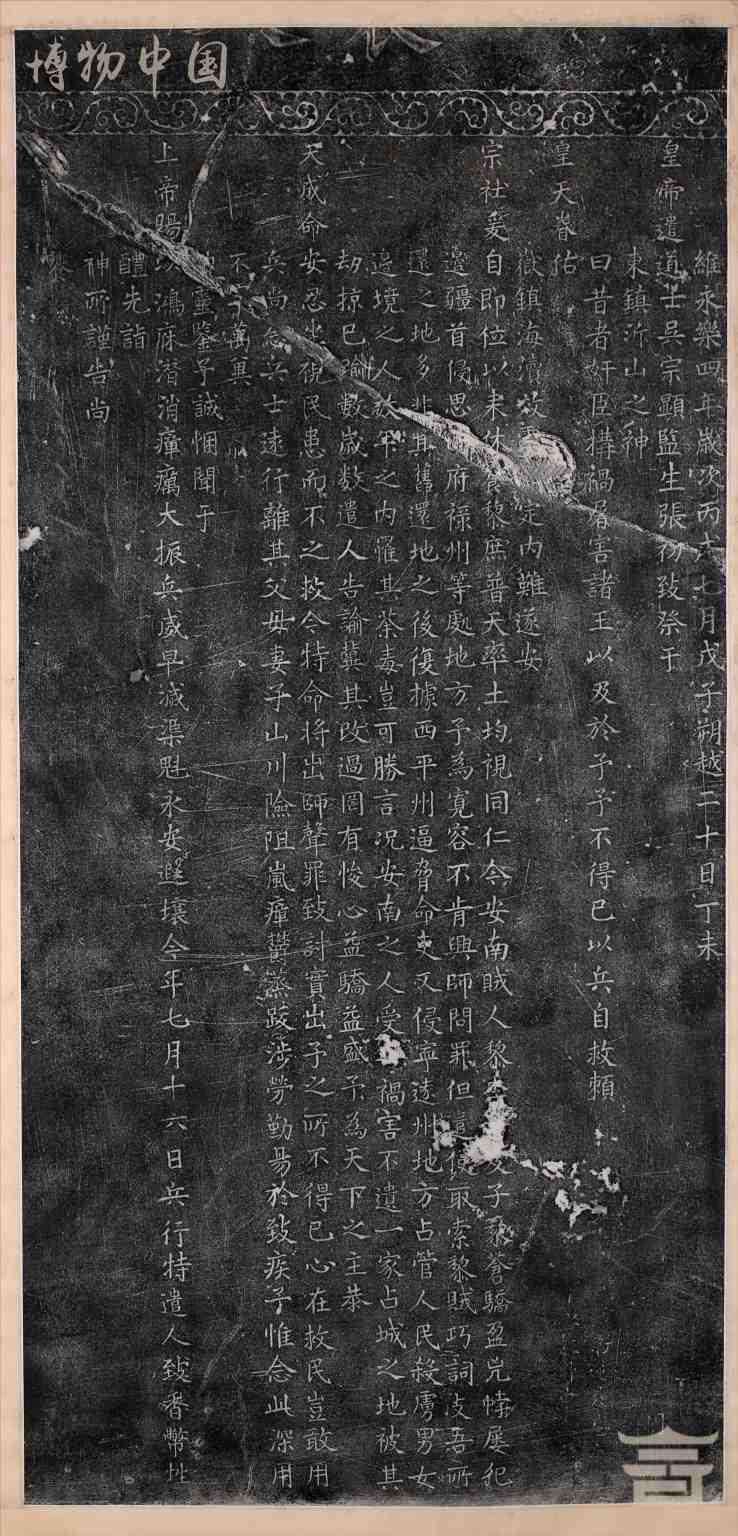 博物中国
維永樂四年歲次丙戌七月戊子朔越二十日丁未
皇帝遣道士吳宗顯監生張礽致祭于
東鎮沂山之神
曰昔者奸臣搆禍屠害諸王以及於予予不得已以兵自救賴
皇天眷佑
嶽鎮海瀆 定內難遂安
宗社爰自即位以来休 黎庶普天率土均視同仁今安南賊人黎 父子黎蒼驕盈兇悖屢犯
邊疆首侵思 府祿州等處地方予為寬容不肯興師問罪但遣使取索黎賊巧詞支吾所
還之地多非其舊還地之後復據西平州逼脅命吏又侵寧遠州地方占管人民殺虜男女
邊境之人 年之內罹其荼毒豈可勝言况安南之人受 禍害不遺一家占城之地被其
刼掠已踰數歲数遣人告諭冀其改過罔有悛心益驕益盛予為天下之主恭
天成命安忍坐視民患而不之救今特命將出師聲罪致討實出予之所不得已心在救民豈敢用
兵尚念兵士遠行離其父母妻子山川險阻嵐瘴欝蒸跋涉勞勤易於致疾予惟念此深用
不 萬冀
靈鑒予誠悃聞于
上帝賜以鴻庥潛消瘴癘大振兵威早滅渠魁永安遐壤今年七月十六日兵行特遣人致香幣牲
醴先詣
神所謹告尚